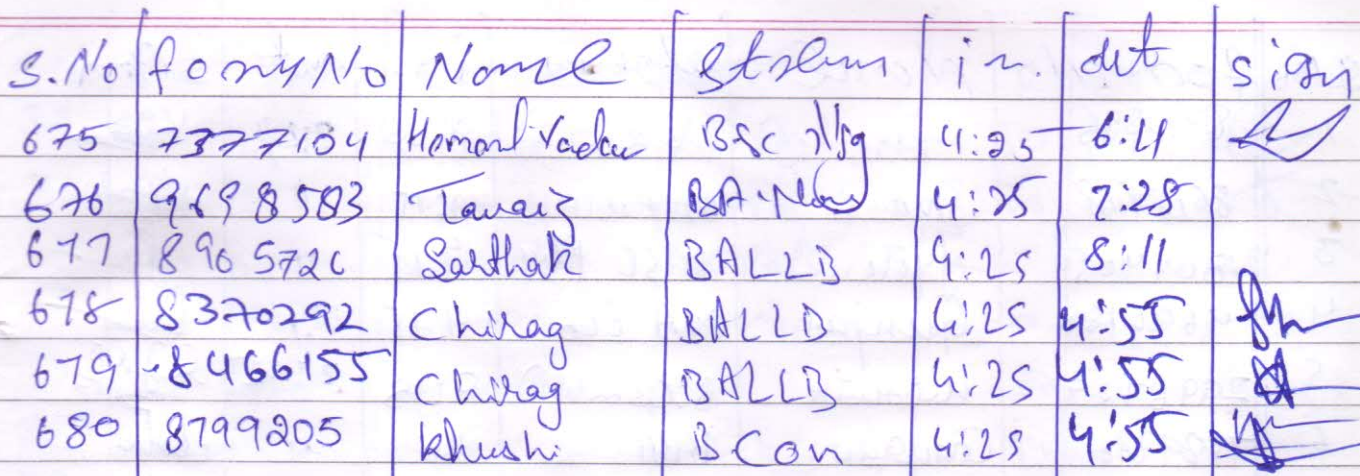 S.No Form No Name Stream in. out sign
675 7377104 Hemant Yadav BSc 4:25 6:11
676 9698583 Tavaiz BA 4:25 7:28
677 8965726 Sarthak BALLB 4:25 8:11
678 8370292 Chirag BALLB 4:25 4:55
679 8466155 Chirag BALLB 4:25 4:55
680 8799205 Khushi B Com 4:25 4:55